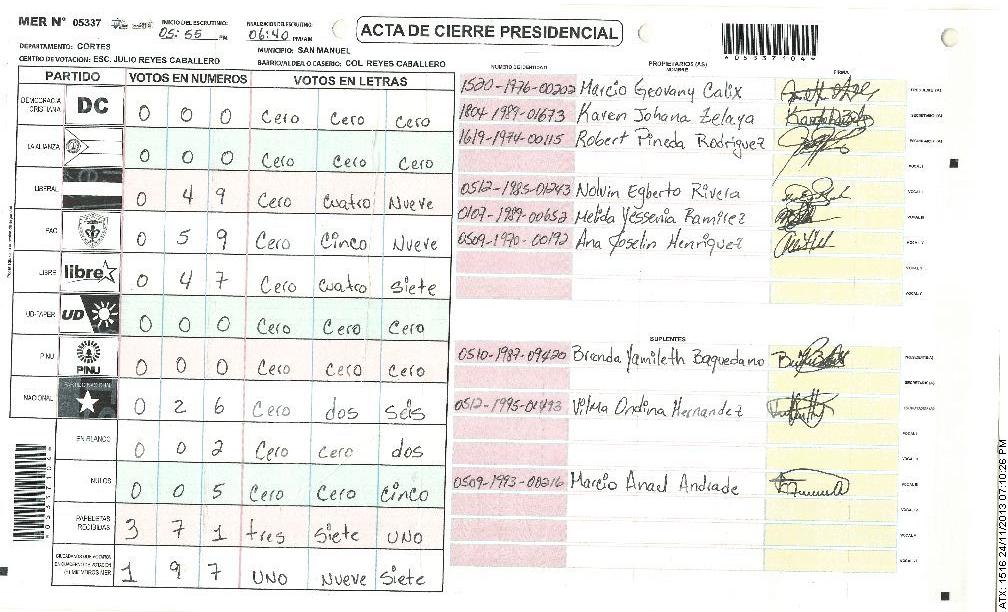 MER Nº 05337 INICIO DEL ESCRUTINIO: 05:55 PM FINALIZACION DEL ESCRUTINIO: 06:40 PM/AM
ACTA DE CIERRE PRESIDENCIAL
*05337104*
DEPARTAMENTO: CORTES MUNICIPIO: SAN MANUEL
CENTRO DE VOTACION: ESC. JULIO REYES CABALLERO BARRIO/ALDEA O CASERIO: COL REYES CABALLERO
PARTIDO VOTOS EN NUMEROS VOTOS EN LETRAS
DEMOCRACIA CRISTIANA DC 0 0 0 Cero Cero Cero
LA ALIANZA 0 0 0 Cero Cero Cero
LIBERAL 0 4 9 Cero Cuatro Nueve
PAC 0 5 9 Cero Cinco Nueve
LIBRE libre 0 4 7 Cero Cuatro Siete
UD-FAPER UD 0 0 0 Cero Cero Cero
PINU PINU 0 0 0 Cero Cero Cero
NACIONAL 0 2 6 Cero dos Seis
EN BLANCO 0 0 2 Cero Cero dos
NULOS 0 0 5 Cero Cero Cinco
PAPELETAS RECIBIDAS 3 7 1 tres Siete UNO
CIUDADANOS QUE VOTARON 1 9 7 UNO Nueve Siete
NUMERO DE IDENTIDAD PROPIETARIOS (AS) NOMBRE FIRMA
1520-1976-00202 Marcio Geovany Calix PRESIDENTE (A)
1804-1989-01673 Karen Johana Zelaya SECRETARIO (A)
1619-1974-00115 Robert Pineda Rodriguez ESCRUTADOR (A)
VOCAL I
0512-1985-01243 Nolvin Egberto Rivera VOCAL II
0107-1989-00652 Melida Yessenia Ramirez VOCAL III
0509-1970-00192 Ana Joselin Henriquez VOCAL IV
VOCAL V
SUPLENTES
0510-1987-09420 Brenda Yamileth Baquedano PRESIDENTE (A)
SECRETARIO (A)
0512-1995-01493 Vilma Ondina Hernandez ESCRUTADOR (A)
VOCAL I
VOCAL II
0509-1993-00216 Marcio Anael Andrade VOCAL III
VOCAL IV
*05337104*
ATX: 1516 24/11/2013 07:10:26 PM